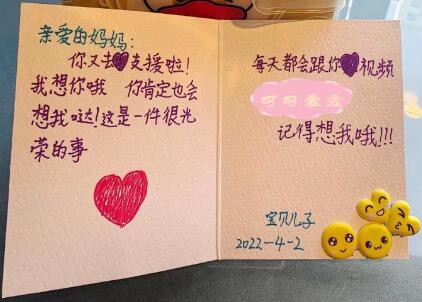 亲爱的妈妈：
你又去支援啦！
我想你哦 你肯定也会
想我哒！这是一件很光
荣的事
每天都会跟你视频
可可爱爱
记得想我哦!!!
宝贝儿子
2022-4-2